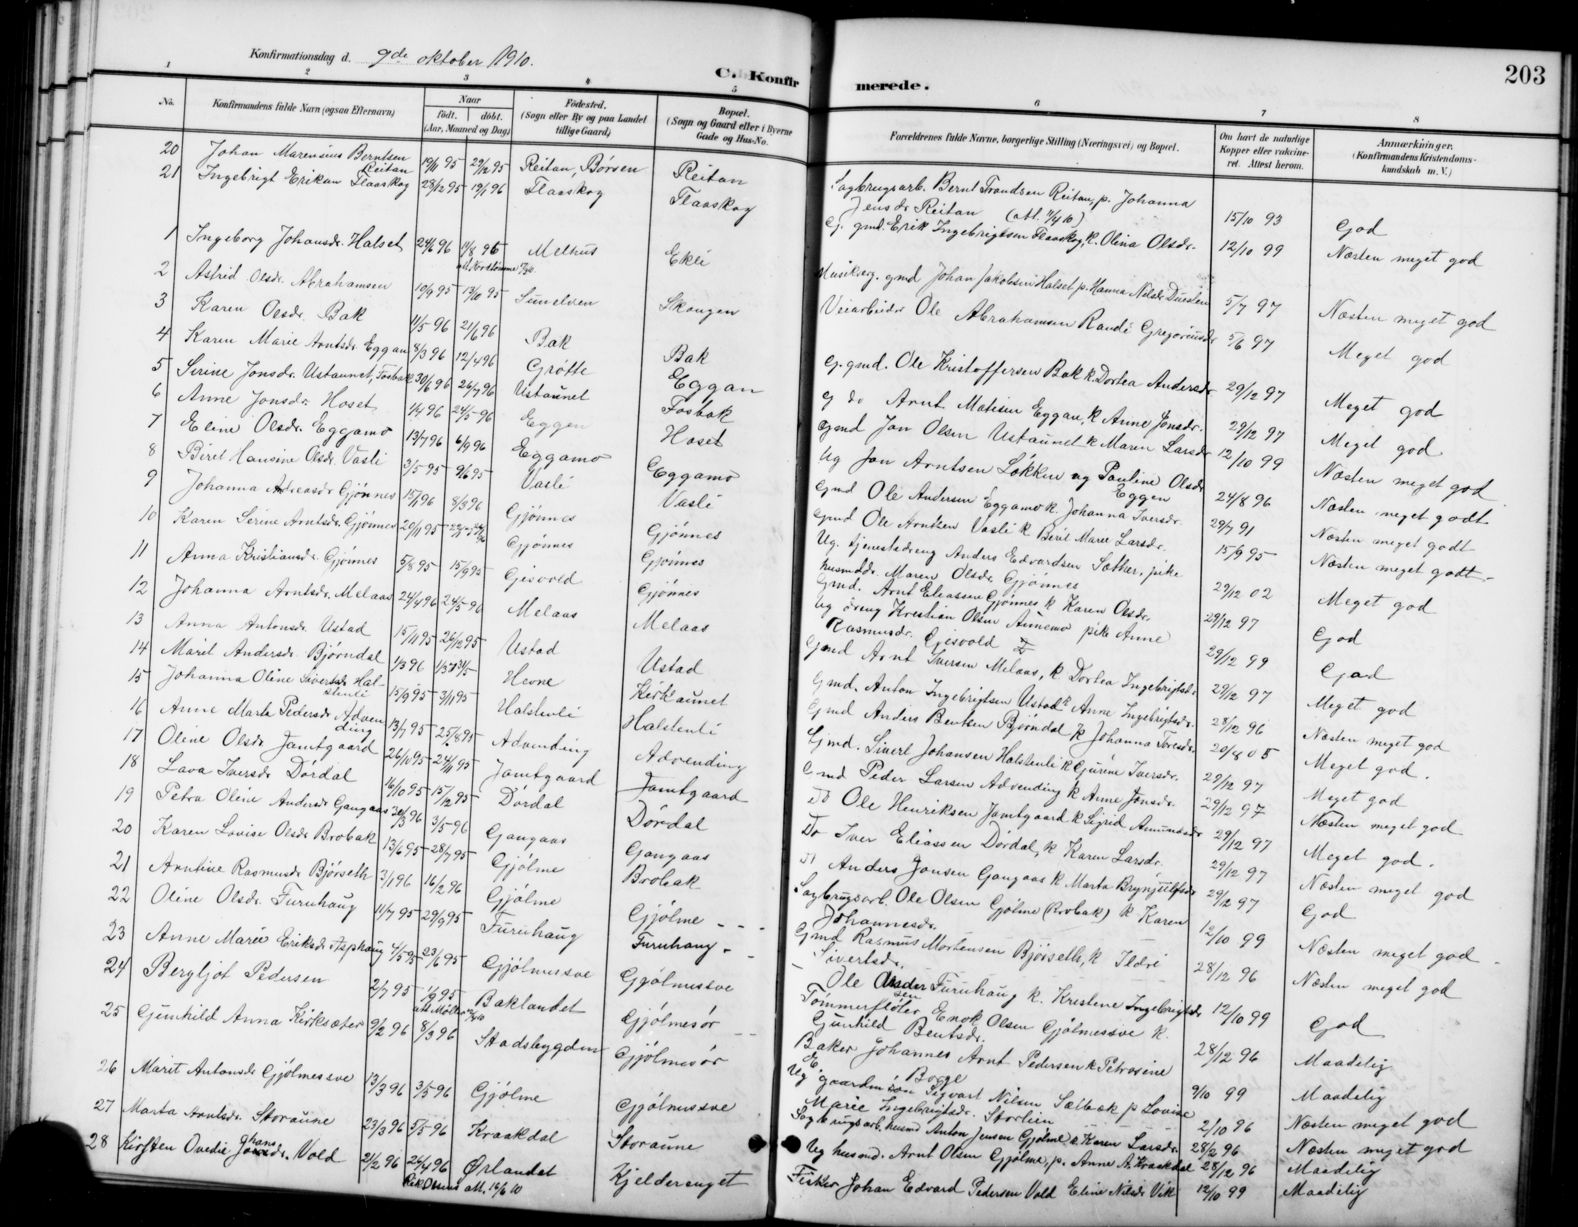 Konfirmationsdag d. 9de oktober 1910.
C. Konfirmerede.
203
1 2 3 4 5 6 7 8
No.
Konfirmandens fulde Navn (ogsaa Efternavn)
Naar født. | døbt. (Aar, Maaned og Dag)
Fødested. (Sogn eller By og paa Landet tillige Gaard)
Bopæl. (Sogn og Gaard eller i Byerne Gade og Hus-No.
Forældrenes fulde Navne, borgerlige Stilling (Næringsvei) og Bopæl.
Om havt de naturlige Kopper eller vaccineret. Attest herom.
Anmærkninger. (Konfirmandens Kristendomskundskab m. V.)
20 Johan Marensius Berntsen Reitan 19/11 95 29/12 95 Reitan, Børsen Reitan Sagbrugsarb. Bernt Trondsen Reitan, p. Johanna Jensdr Reitan 15/10 93 God
21 Ingebrigt Erikan Flaaskog 23/12 95 19/1 96 Flaaskog Flaaskog G. gmd. Erik Ingebrigtsen Flaaskog, k. Olina Olsdr. 12/10 99 Næsten meget god
1 Ingeborg Johansdr. Halset 24/6 96 Melhus Ekli gmd Johan Jakobsen Halset p. Hanna Nilsdr 5/7 97 Næsten meget god
2 Astrid Olsdr. Abrahamsen 19/9 95 13/10 95 Sunelven Skougen Veiarbeider Ole Abrahamsen Randi Gregoriusdr 97 Meget god
3 Karen Olsdr. Bak 11/5 96 21/6 96 Bak Bak G. gmd. Ole Kristoffersen Bak k. Dortea Andersdr 29/12 97 Meget god
4 Karen Marie Arntsdr Eggan 8/3 96 12/4 96 Grøtte Eggan G do Arnt Matisen Eggan, k Anne Jonsdr. 29/12 97 Meget god
5 Sirine Jonsdr. Ustaunet, Fosbak 30/6 96 26/7 96 Ustaunet Fosbak gmd Jon Olsen Ustaunet k Maren Larsdr 12/10 99 Næsten meget god
6 Anne Jonsdr. Hoset 96 24/5 96 Eggen Hoset Ug Jon Arntsen Løkken og Pauline Olsdr Eggen 24/8 96 Næsten meget godt
7 Eline Olsdr. Eggamo 13/7 96 6/9 96 Eggamo Eggamo Gmd Ole Andersen Eggamo k. Johanna Iversdr. 29/7 91 Næsten meget godt
8 Birit Hansine Olsdr Vasli 3/5 95 9/6 95 Vasli Vasli Gmd Ole Arntzen Vasli k Berit Marie Larsdr. 15/9 95 Næsten meget godt
9 Johanna Andreasdr Gjønnes 96 8/3 96 Gjønnes Gjønnes Ug. tjenestedreng Anders Edvardsen Sæther, pike husmddr. Maren Olsdr Gjønnes 29/12 02 Meget god
10 Karen Serine Arntsdr. Gjønnes 20/11 95 Gjønnes Gjønnes Gmd. Arnt Eliassen Gjønnes k Karen Olsdr. 29/12 97 God
11 Anna Kristiansdr. Gjønnes 5/8 95 15/9 95 Gjesvold Gjønnes Ug dreng Kristian Olsen Annemo pik Anne Rasmusdr. Gjesvold 29/12 99 God
12 Johanna Arntsdr. Melaas 24/4 96 24/5 96 Melaas Melaas Gmd Arnt Iversen Melaas, k Dortea Ingebrigtsdr 29/12 97 Meget god
13 Anna Antonsdr. Ustad 15/11 95 26/12 95 Ustad Ustad Gmd. Anton Ingebrigtsen Ustad k Anne Ingebrigtsdr. 28/12 96 Næsten meget god
14 Marit Andersdr. Bjørndal 1/3 96 Hevne Kirklaunet Gmd Anders Bentsen Bjørndal k Johanna Toresdr. 20/8 05 Meget god.
15 Johanna Oline Siversdr Halstenli 15/9 95 3/11 95 Halstenli Halstenli Gmd. Sivert Johansen Halstenli k Gurine Iversdr. 29/12 97 Meget god
16 Anne Marta Pedersdr Advending 13/7 95 25/8 95 Advending Advending Gmd Peder Larsen Advending k Anne Jonsdr. 29/12 97 Næsten meget god
17 Oline Olsdr Jamtgaard 26/10 95 24/11 95 Jamtgaard Jamtgaard Do Ole Henriksen Jamtgaard k Sigrid Amundsdr 29/12 97 Meget god.
18 Lava Iversdr Dørdal 16/10 95 15/12 95 Dørdal Dørdal Do Iver Eliassen Dørdal, k Karen Larsdr. 29/12 97 Næsten meget god
19 Petra Oline Andersdr Gangaas 30/3 96 3/5 96 Gangaas Gangaas Anders Jonsen Gangaas k Marta Brynjulfsdr 29/12 97 God
20 Karen Lovise Olsdr Brobak 13/6 95 28/7 95 Gjølme Brobak Sagbrugsarb. Ole Olsen Gjølme (Brobak) k Karen Johannesdr. 12/10 99 Næsten meget god
21 Arntine Rasmusdr Bjørseth 3/1 96 16/2 96 Gjølme Gjølme Gmd Rasmus Mortensen Bjørseth, k Ildri Sivertsdr. 28/12 96 Næsten meget god
22 Oline Olsdr. Furuhaug 11/7 95 29/9 95 Furuhaug Furuhaug Ole Olsen Furuhaug k. Kristine Ingebrigtsdr 12/10 99 God
23 Anne Marie Eriksdr Asphaug 4/5 95 23/6 95 Gjølmesøe Gjølmesøe Tømmerfløter Enok Olsen Gjølmesøe k. Gunhild Bentsdr. 28/12 96 Maadelig
24 Bergljot Pedersen 2/7 95 95 Baklandet Gjølmesør Baker Johannes Arnt Pedersen k Petrosine Bogge 9/10 99 Maadelig
25 Gunhild Anna Kirksæter 9/2 96 8/3 96 Stadsbygden Gjølmesør Ug gaardm.søn Sigvart Nilsen Sætbak p Lovise Marie Ingebrigtsdr. Storlien 2/10 96 Næsten meget god
26 Marit Antonsdr Gjølmesøe 13/3 96 3/5 96 Gjølme Gjølmesøe Sagbrugsarb. husmd Anton Jensen Gjølme k Karen Larsdr. 28/12 96 Næsten meget god
27 Marta Arntsdr. Storaune 23/3 96 5/5 96 Kraakdal Storaune Ug husmd. Arnt Olsen Gjølme, p. Anne A. Kraakdal 28/12 96 Maadelig
28 Kirsten Ovedie Johansdr. Vold 2/2 96 26/4 96 Ørlandet Kjelderenget Fisker Johan Edvard Pedersen Vold Eline Nilsdr Vik 12/10 99 Maadelig